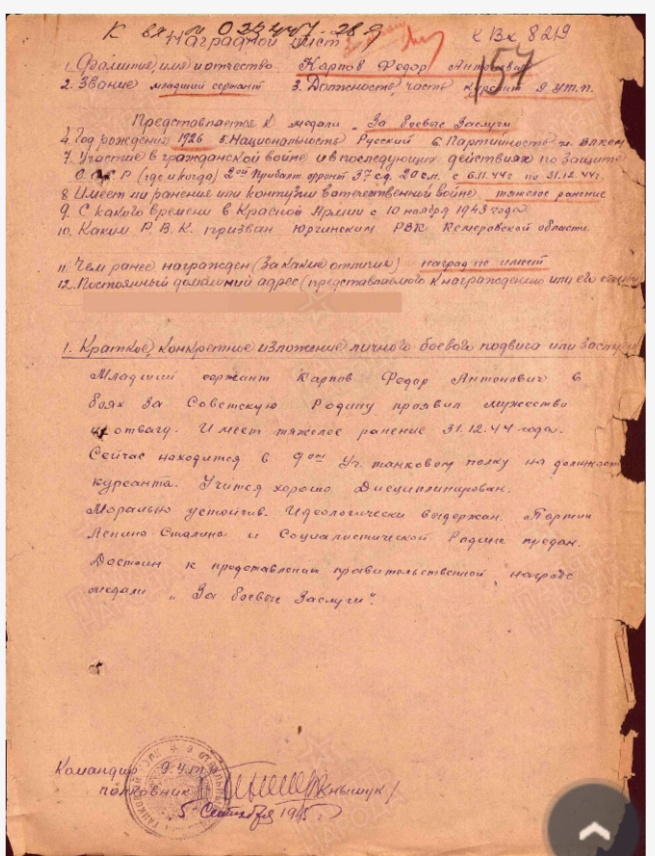 К вх. № 023447-28 9
Наградной лист
К Вх 8219
157
1. Фамилие, имя и отчество Карпов Федор Антонович
2. Звание младший сержант 3. Должность, часть курсант 9 У.Т.П.
Представляется к медали „За боевые Заслуги
4. Год рождения 1926 5. Национальность Русский 6. Партийность чл. ВЛКСМ
7. Участие в гражданской войне и в последующих действиях по защите
С.С.С.Р (где и когда) 2ой Прибалт. фронт 37 сд. 20 сп. с 6.11.44г по 31.12.44г.
8 Имеет ли ранения или контузии в отечественной войне тяжелое ранение
9. С какого времени в Красной Армии с 10 ноября 1943 года
10. Каким Р.В.К. призван Юргинским РВК Кемеровской области.
11. Чем ранее награжден (За какие отличия) наград не имеет
12. Постоянный домашний адрес (представляемого к награждению или его
1. Краткое, конкретное изложение личного боевого подвига или
Младший сержант Карпов Федор Антонович в
боях За Советскую Родину проявил мужество
и отвагу. Имеет тяжелое ранение 31.12.44 года.
Сейчас находится в 9ом Уч. танковом полку на должност
курсанта. Учится хорошо Дисциплинирован.
Морально устойчив. Идеологически выдержан. Партии
Ленина-Сталина и Социалистической Родине предан.
Достоин к представлении правительственной награде
медали „За боевые Заслуги".
Командир 9 У.Т.П.
полковник
5 Сентября 1945 г.